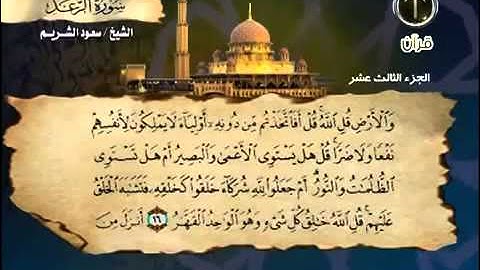 سورة الرعد
الشيخ / سعود الشريم
قرآن
الجزء الثالث عشر
وَٱلْأَرْضِ قُلِ ٱللَّهُ ۚ قُلْ أَفَٱتَّخَذْتُم مِّن دُونِهِۦٓ أَوْلِيَآءَ لَا يَمْلِكُونَ لِأَنفُسِهِمْ
نَفْعًا وَلَا ضَرًّا ۚ قُلْ هَلْ يَسْتَوِى ٱلْأَعْمَىٰ وَٱلْبَصِيرُ أَمْ هَلْ تَسْتَوِى
ٱلظُّلُمَٰتُ وَٱلنُّورُ ۗ أَمْ جَعَلُوا۟ لِلَّهِ شُرَكَآءَ خَلَقُوا۟ كَخَلْقِهِۦ فَتَشَٰبَهَ ٱلْخَلْقُ
عَلَيْهِمْ ۚ قُلِ ٱللَّهُ خَٰلِقُ كُلِّ شَىْءٍ وَهُوَ ٱلْوَٰحِدُ ٱلْقَهَّٰرُ ١٦ أَنزَلَ مِنَ